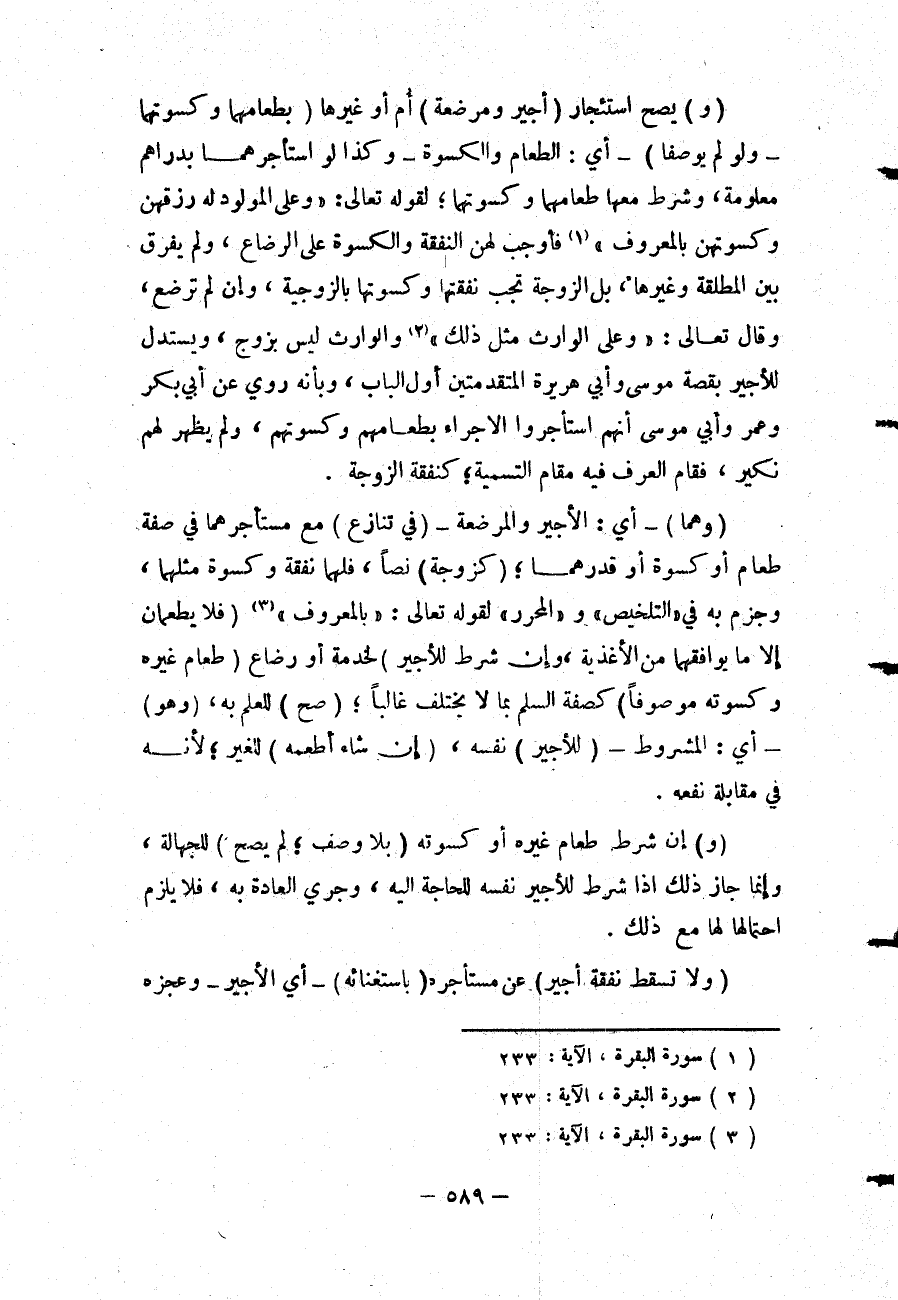 ( و ) يصح استئجار ( أجير ومرضعة ) أُم أو غيرها ( بطعامهما وكسوتهما
ـ ولو لم يوصفا ) ـ أي : الطعام والكسوة ـ وكذا لو استأجرهمـــا بدراهم
معلومة، وشرط معها طعامهما وكسوتهما ؛ لقوله تعالى: « وعلى المولود له رزقهن
وكسوتهن بالمعروف » (١) فأوجب لهن النفقة والكسوة على الرضاع ، ولم يفرق
بين المطلقة وغيرها ، بل الزوجة تجب نفقتها وكسوتها بالزوجية ، وان لم ترضع،
وقال تعـالى : « وعلى الوارث مثل ذلك » (٢) والوارث ليس بزوج ، ويستدل
للأجير بقصة موسى وأبي هريرة المتقدمتين أول الباب ، وبأنه روي عن أبي بكر
وعمر وأبي موسى أنهم استأجروا الاجراء بطعـامهم وكسوتهم ، ولم يظهر لهم
نكير ، فقام العرف فيه مقام التسمية؛ كنفقة الزوجة .
( وهما ) ـ أي : الأجير والمرضعة ـ ( في تنازع ) مع مستأجرهما في صفة
طعام أو كسوة أو قدرهمـــا ؛ ( كزوجة ) نصاً ، فلها نفقة وكسوة مثلها ،
وجزم به في «التلخيص» و «المحرر» لقوله تعالى : « بالمعروف » (٣) ( فلا يطعمان
إلا ما يوافقهما من الأغذية ، وإن شرط للأجير ) لخدمة أو رضاع ( طعام غيره
وكسوته موصوفاً ) كصفة السلم بما لا يختلف غالباً ؛ ( صح ) للعلم به، ( وهو )
ـ أي : المشروط ـ ( للأجير ) نفسه ، ( إن شاء أطعمه ) للغير ؛ لأنـــه
في مقابلة نفعه .
( و ) إن شرط طعام غيره أو كسوته ( بلا وصف ؛ لم يصح ) للجهالة ،
وإنما جاز ذلك اذا شرط للأجير نفسه للحاجة اليه ، وجري العادة به ، فلا يلزم
احتمالها لها مع ذلك .
( ولا تسقط نفقة أجير ) عن مستأجره ( باستغنائه ) ـ أي الأجير ـ وعجزه
( ١ ) سورة البقرة ، الآية : ٢٣٣
( ٢ ) سورة البقرة ، الآية : ٢٣٣
( ٣ ) سورة البقرة ، الآية : ٢٣٣
ـ ٥٨٩ ـ